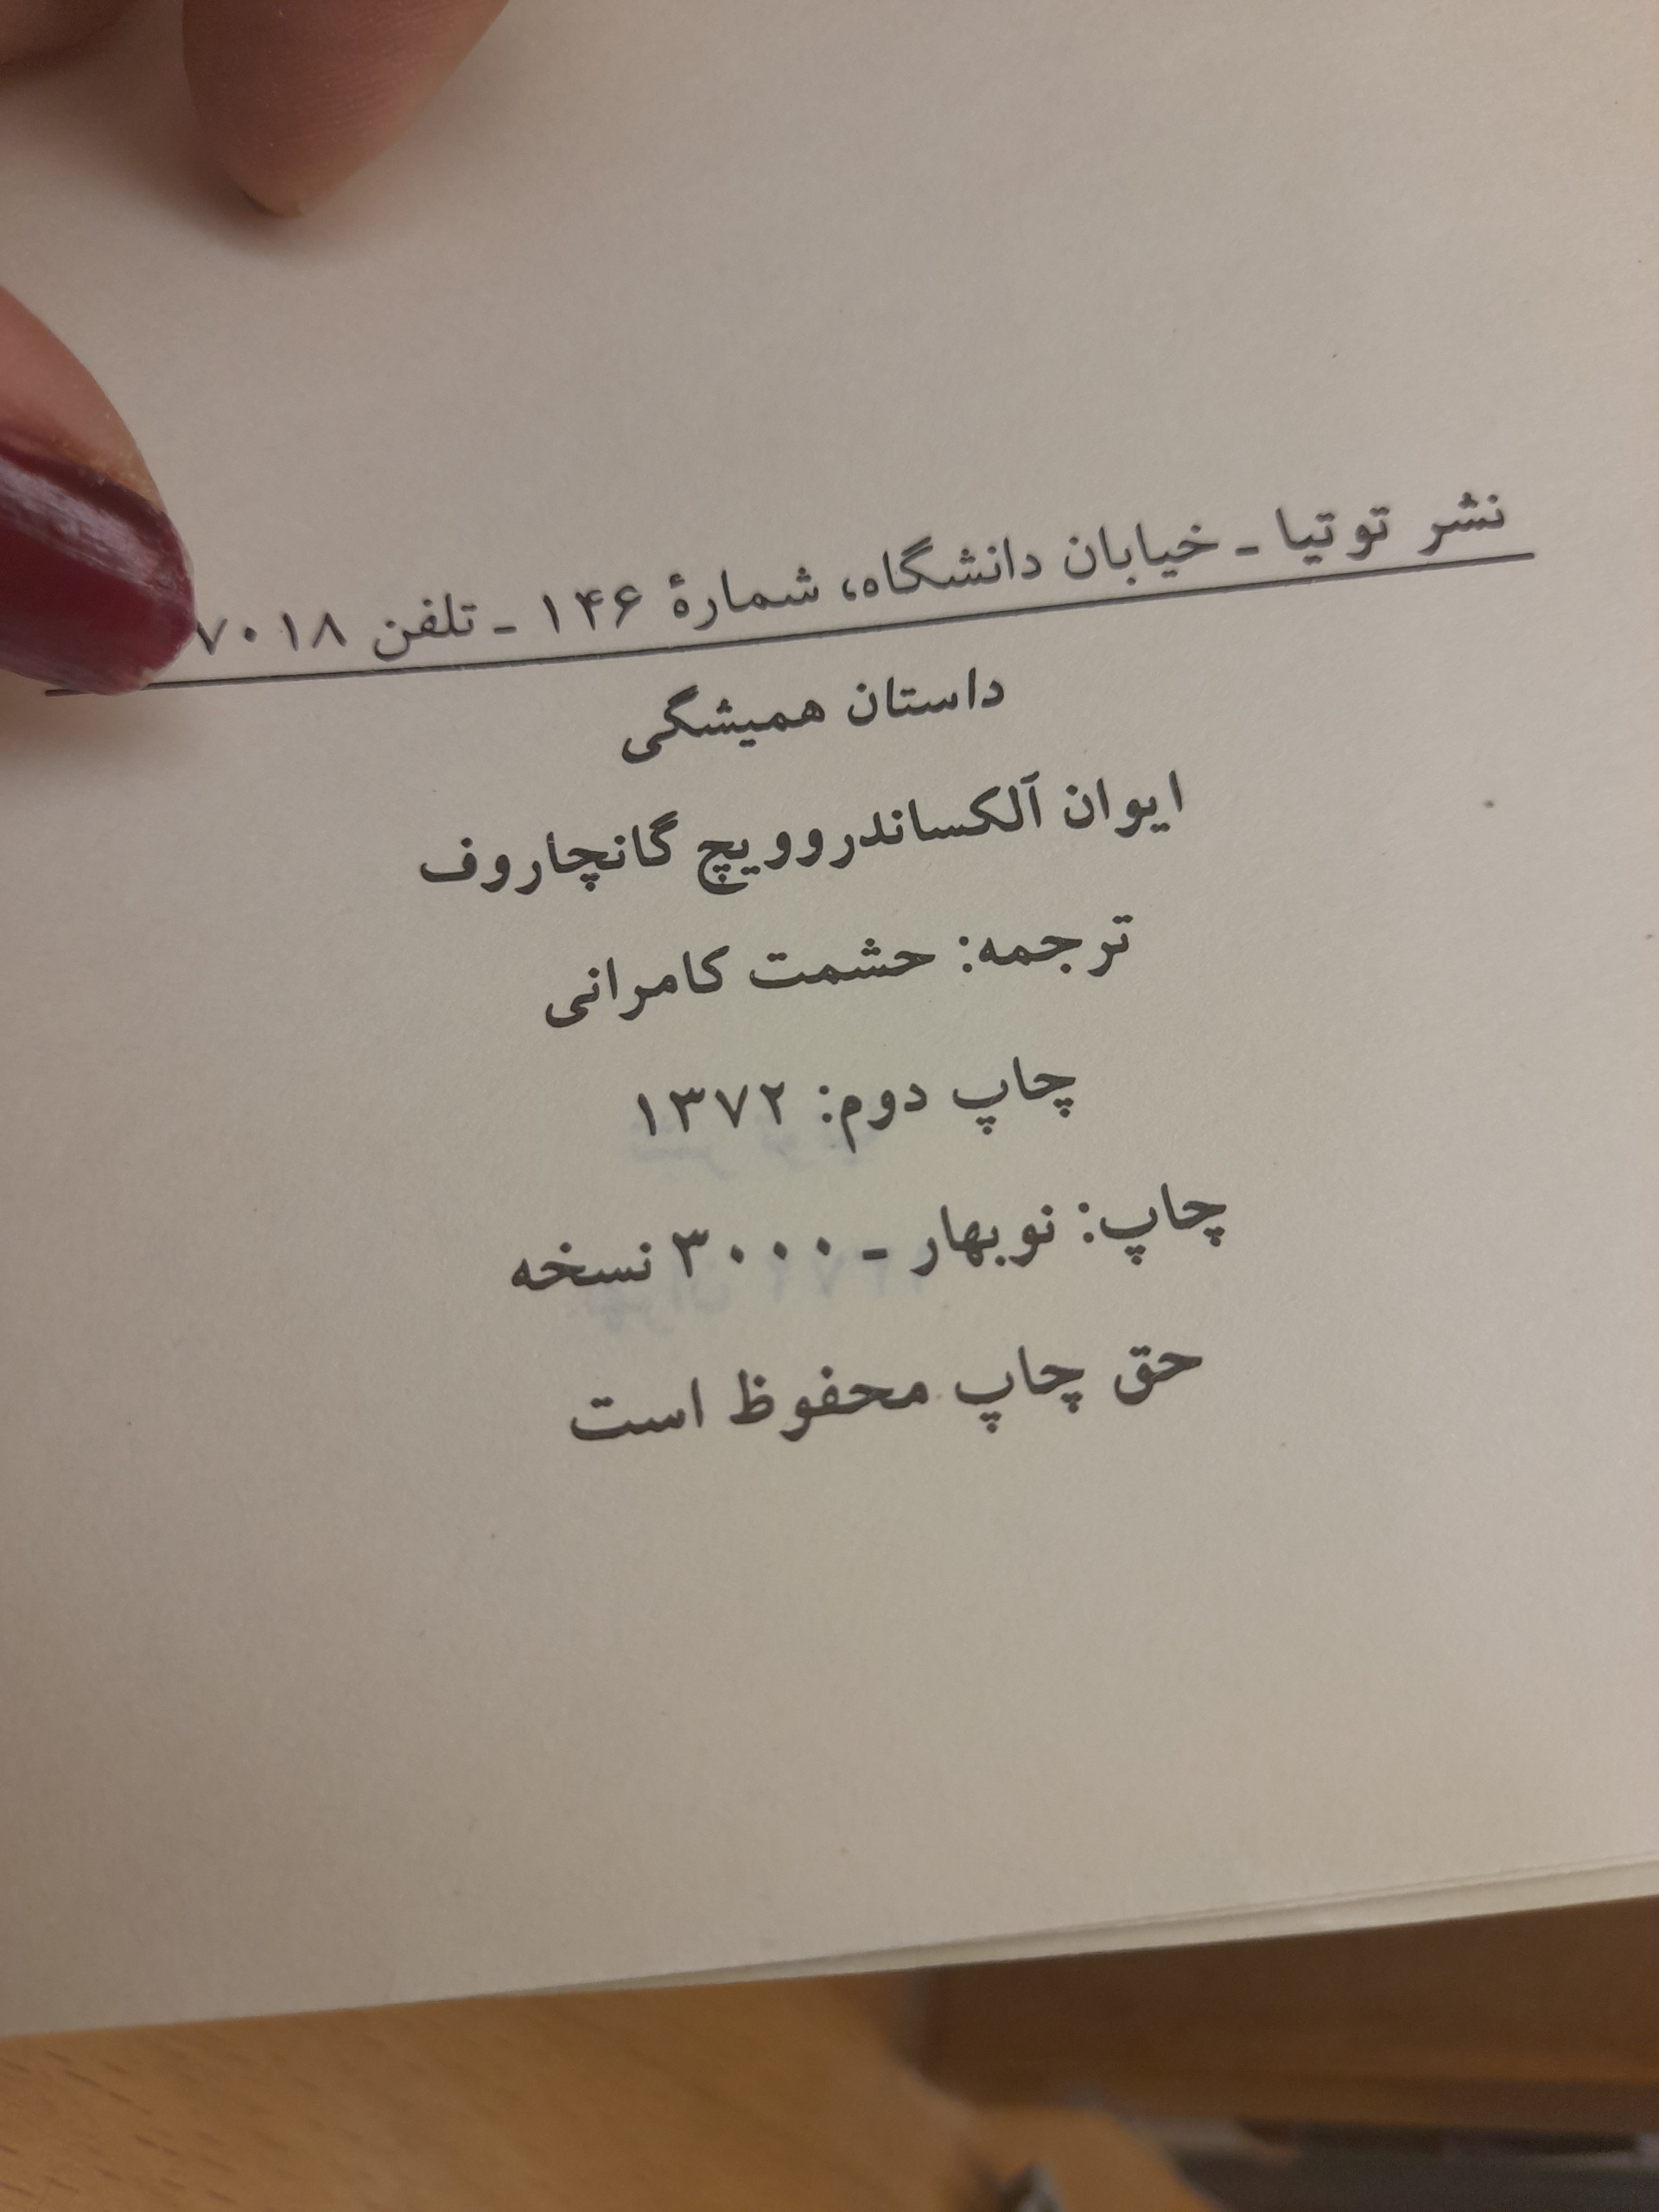 نشر توتیا ـ خیابان دانشگاه، شمارهٔ ۱۴۶ ـ تلفن
داستان همیشگی
ایوان آلکساندروویچ گانچاروف
ترجمه: حشمت کامرانی
چاپ دوم: ۱۳۷۲
چاپ: نوبهار ـ ۳۰۰۰ نسخه
حق چاپ محفوظ است